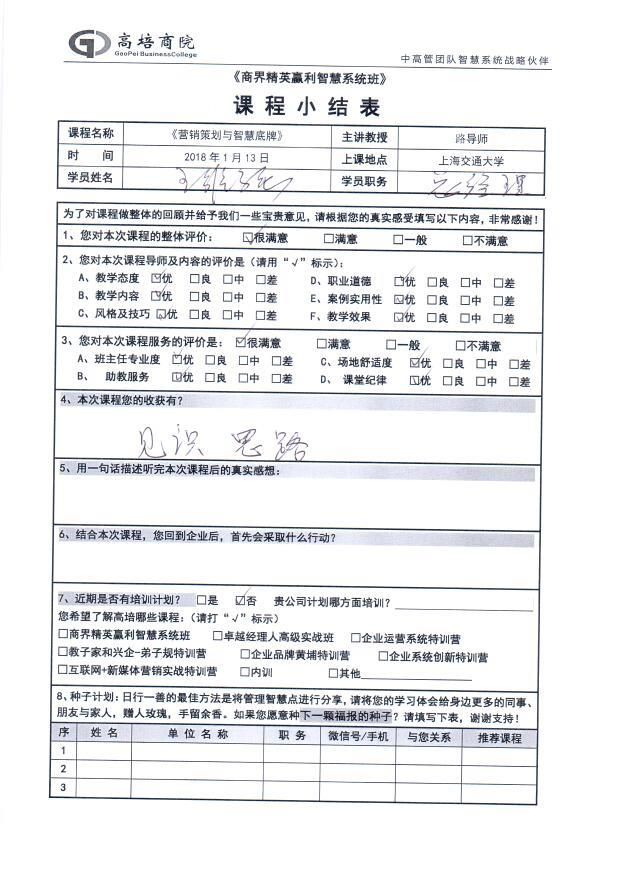 高培商院
GaoPei BusinessCollege
中高管团队智慧系统战略伙伴
《商界精英赢利智慧系统班》
课程小结表
课程名称 《营销策划与智慧底牌》 主讲教授 路导师
时 间 2018年1月13日 上课地点 上海交通大学
学员姓名 学员职务 总经理
为了对课程做整体的回顾并给予我们一些宝贵意见，请根据您的真实感受填写以下内容，非常感谢！
1、您对本次课程的整体评价： ☑很满意 □满意 □一般 □不满意
2、您对本次课程导师及内容的评价是（请用“√”标示）；
A、教学态度 ☑优 □良 □中 □差 D、职业道德 ☑优 □良 □中 □差
B、教学内容 ☑优 □良 □中 □差 E、案例实用性 ☑优 □良 □中 □差
C、风格及技巧 ☑优 □良 □中 □差 F、教学效果 ☑优 □良 □中 □差
3、您对本次课程服务的评价是： ☑很满意 □满意 □一般 □不满意
A、班主任专业度 ☑优 □良 □中 □差 C、场地舒适度 ☑优 □良 □中 □差
B、 助教服务 ☑优 □良 □中 □差 D、 课堂纪律 ☑优 □良 □中 □差
4、本次课程您的收获有？
见识 思路
5、用一句话描述听完本次课程后的真实感想：
6、结合本次课程，您回到企业后，首先会采取什么行动？
7、近期是否有培训计划？ □是 ☑否 贵公司计划哪方面培训？
您希望了解高培哪些课程：（请打“√”标示）
□商界精英赢利智慧系统班 □卓越经理人高级实战班 □企业运营系统特训营
□教子家和兴企-弟子规特训营 □企业品牌黄埔特训营 □企业系统创新特训营
□互联网+新媒体营销实战特训营 □内训 □其他
8、种子计划：日行一善的最佳方法是将管理智慧点进行分享，请将您的学习体会给身边更多的同事、
朋友与家人，赠人玫瑰，手留余香。如果您愿意种下一颗福报的种子？请填写下表，谢谢支持！
序 姓名 单位名称 职务 微信号/手机 与您关系 推荐课程
1
2
3